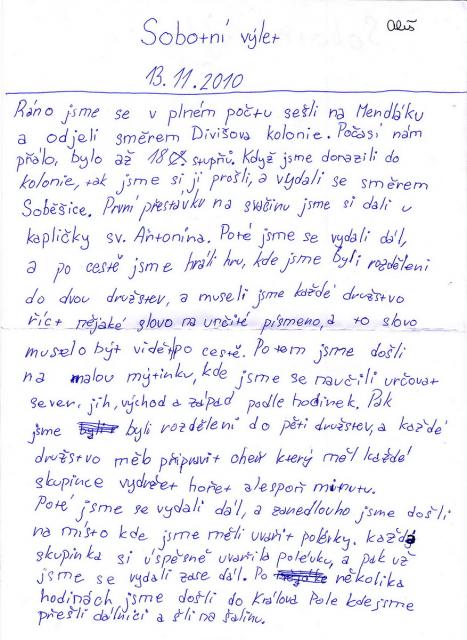 Sobotní výlet
Aleš
13.11.2010
Ráno jsme se v plném počtu sešli na Mendláku
a odjeli směrem Divišova kolonie. Počasí nám
přálo, bylo až 18 stupňů. Když jsme dorazili do
kolonie, tak jsme si ji prošli, a vydali se směrem
Soběšice. První přestávku na svačinu jsme si dali u
kapličky sv. Antonína. Poté jsme se vydali dál,
a po cestě jsme hráli hru, kde jsme byli rozděleni
do dvou družstev, a museli jsme každé družstvo
říct nějaké slovo na určité písmeno, a to slovo
muselo být vidět po cestě. Potom jsme došli
na malou mýtinku, kde jsme se naučili určovat
sever, jih, východ a západ podle hodinek. Pak
jsme byli rozděleni do pěti družstev, a každé
družstvo mělo připravit oheň který měl každé
skupince vydržet hořet alespoň minutu.
Poté jsme se vydali dál, a zanedlouho jsme došli
na místo kde jsme měli uvařit polévky. každá
skupinka si úspěsně uvařila polévku, a pak už
jsme se vydali zase dál. Po několika
hodinách jsme došli do Králova Pole kde jsme
přešli dálnici a šli na šalinu.